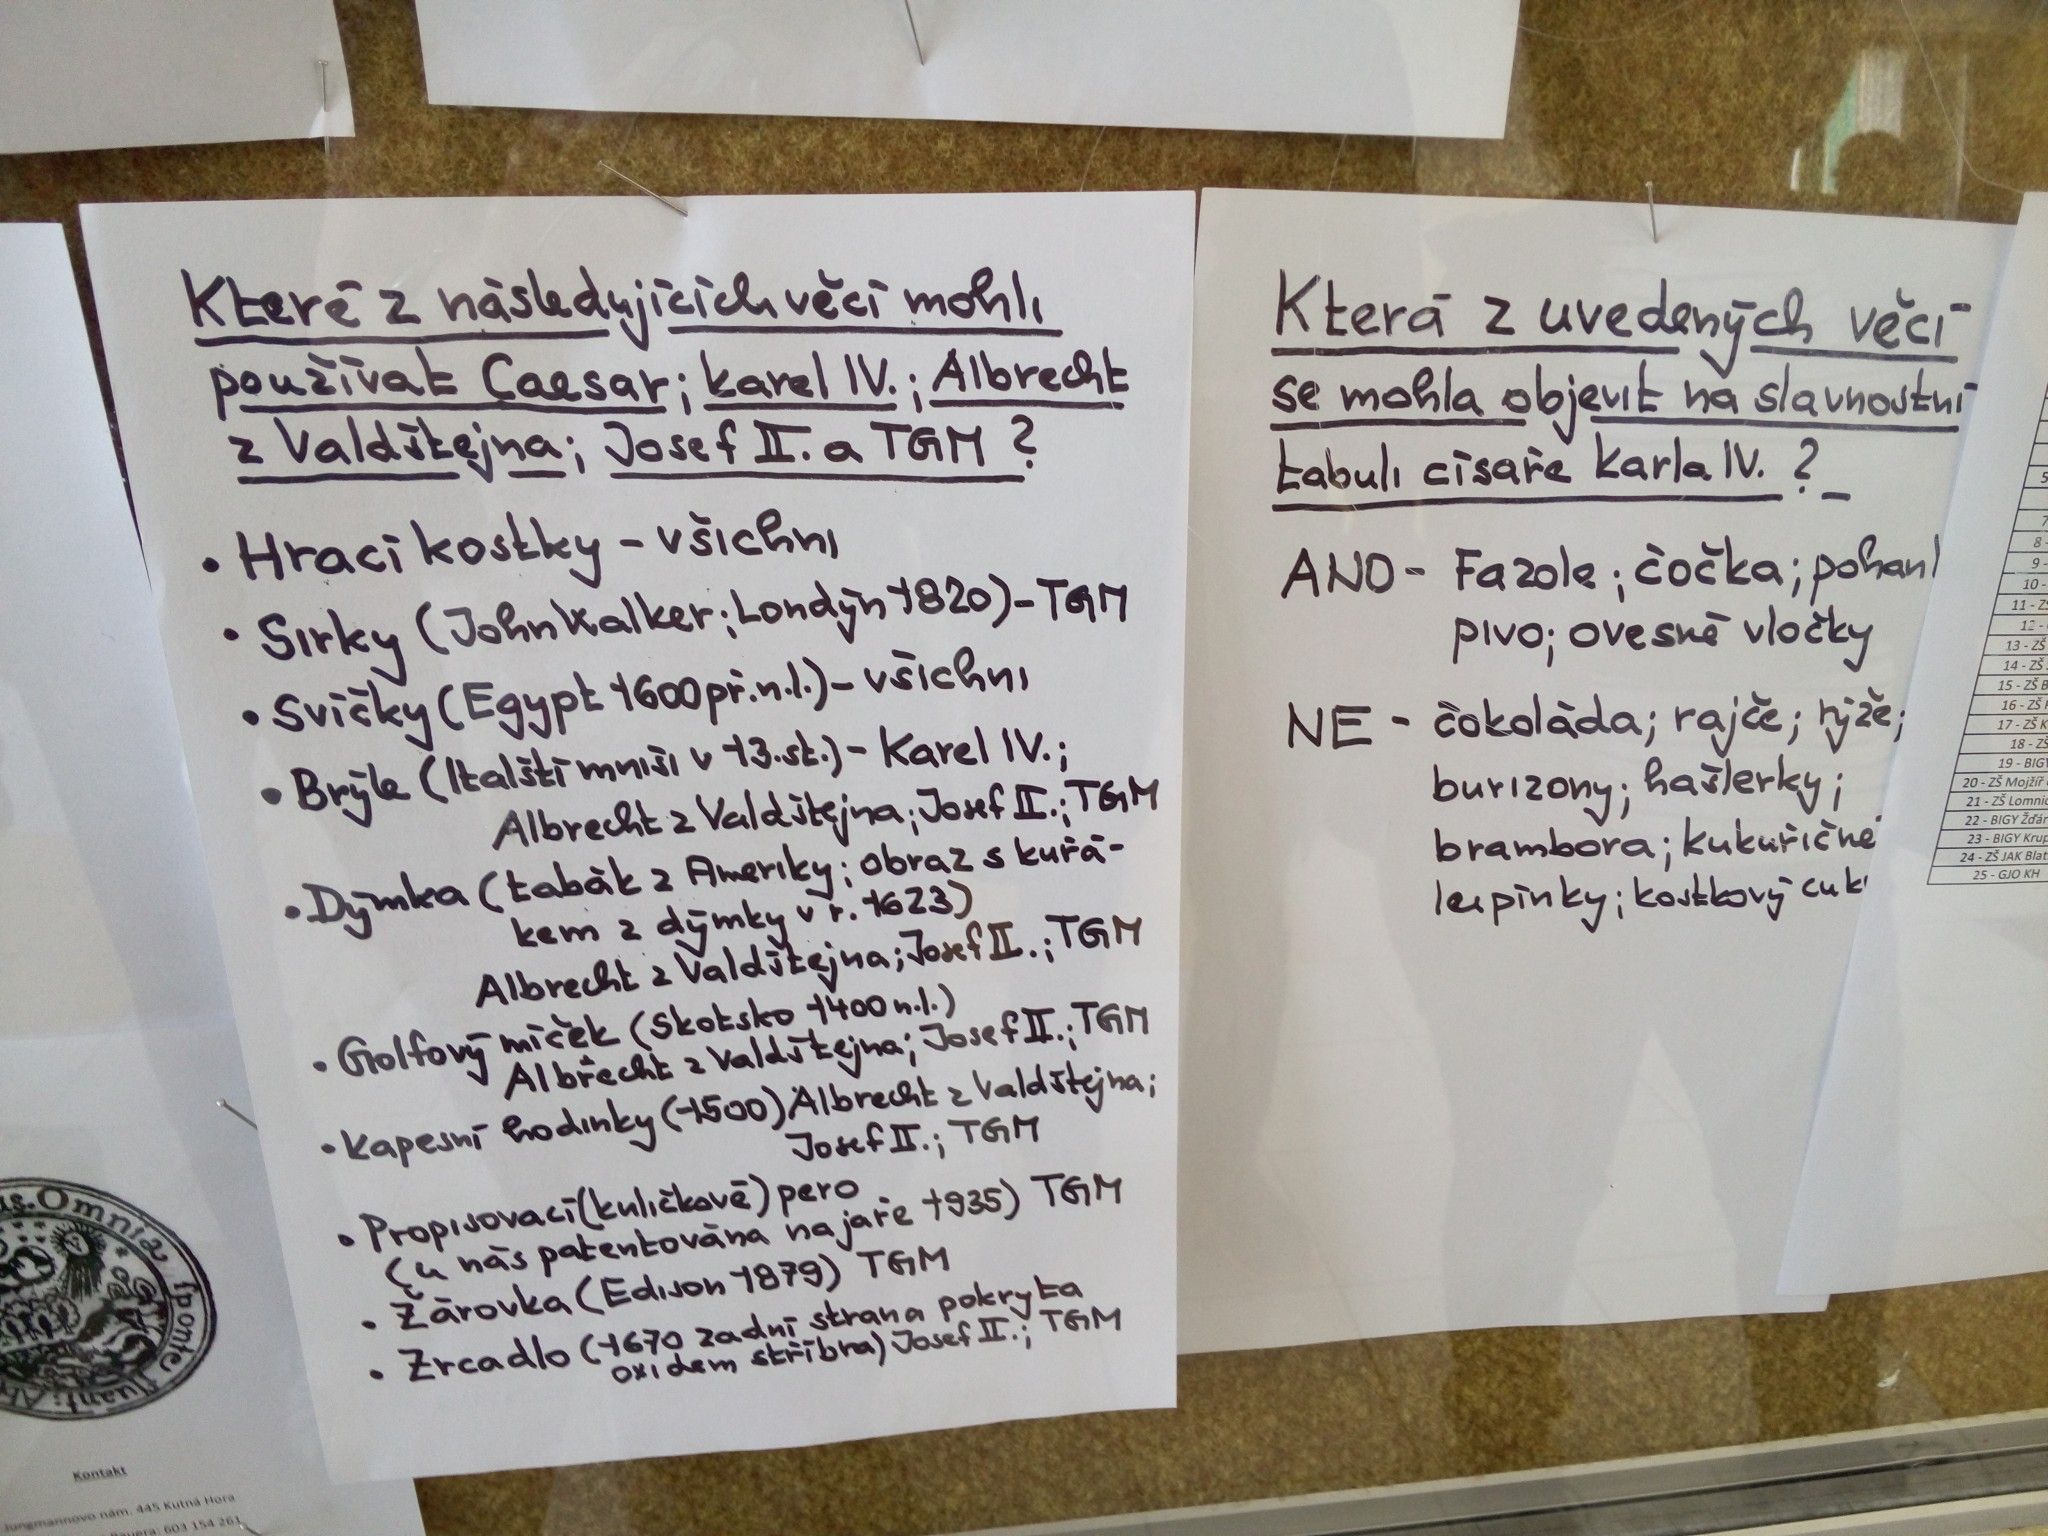 Které z následujících věcí mohli
používat Caesar; Karel IV.; Albrecht
z Valdštejna; Josef II. a TGM?
• Hrací kostky - všichni
• Sirky (John Walker; Londýn 1820) - TGM
• Svíčky (Egypt 1600 př.n.l.) - všichni
• Brýle (Italští mniši v 13.st.) - Karel IV.;
Albrecht z Valdštejna; Josef II.; TGM
• Dýmka (tabák z Ameriky; obraz s kuřá-
kem z dýmky v r. 1623)
Albrecht z Valdštejna; Josef II.; TGM
• Golfový míček (Skotsko 1400 n.l.)
Albrecht z Valdštejna; Josef II.; TGM
• Kapesní hodinky (1500) Albrecht z Valdštejna;
Josef II.; TGM
• Propisovací (kuličkové) pero
(u nás patentována na jaře 1935) TGM
• Žárovka (Edison 1879) TGM
• Zrcadlo (1670 zadní strana pokryta
oxidem stříbra) Josef II.; TGM
Která z uvedených věcí
se mohla objevit na slavnostní
tabuli císaře Karla IV.?
ANO - Fazole; čočka; pohan
pivo; ovesné vločky
NE - čokoláda; rajče; rýže;
burizony; hašlerky;
brambora; kukuřičné
lupínky; kostkový cuk
us. Omnia
sponte fluant:
Kontakt
Jungmannovo nám. 445 Kutná Hora
Bauera: 603 154 261
5
7
8 -
9 -
10 -
11 - ZŠ
12 -
13 - ZŠ
14 - ZŠ
15 - ZŠ B
16 - ZŠ
17 - ZŠ K
18 - ZŠ
19 - BIGY
20 - ZŠ Mojžíř
21 - ZŠ Lomnic
22 - BIGY Žďár
23 - BIGY Krup
24 - ZŠ JAK Blat
25 - GJO KH